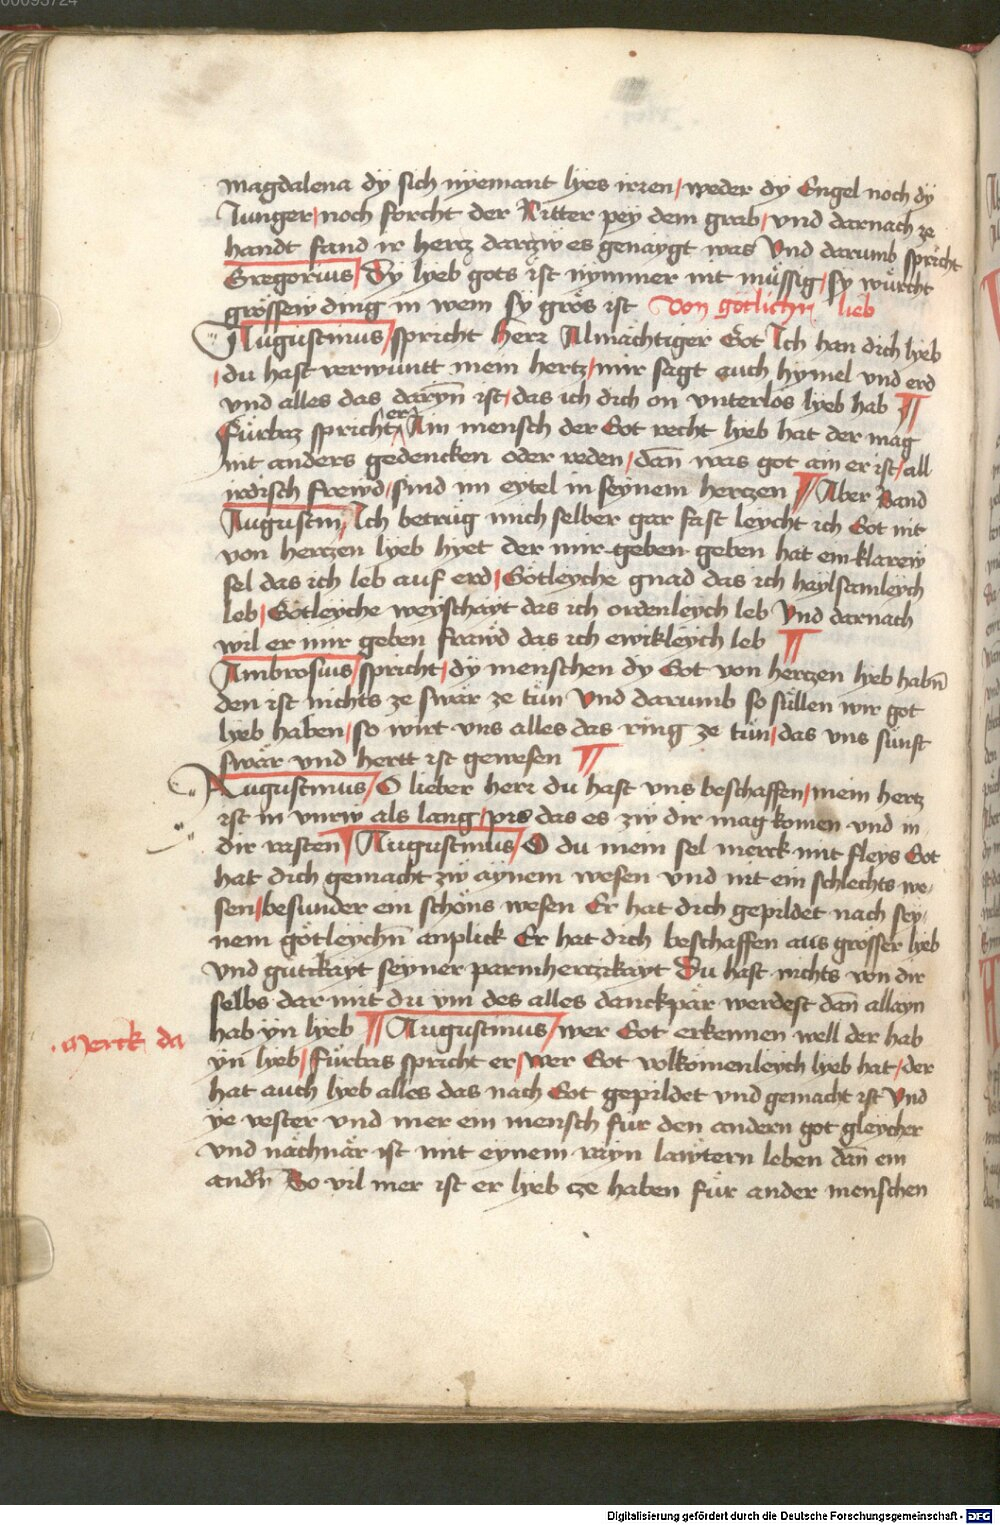 00093724
magdalena dÿ sich nÿemant lÿes irren / weder dÿ Engel noch dÿ
Junger / noch forcht der Ritter peÿ dem grab / vnd darnach ze
handt fand ir hertz dartzw es genaÿgt was Vnd darumb spricht
Gregorius / Dÿ lÿeb gots ist nÿmmer nit müssig / sÿ würcht
grössew ding in wem sÿ grös ist Von götlicher lieb
Augustinus / spricht herr Almächtiger Got Ich han dich lÿeb
/ du hast verwuntt mein hertz / mir sagt euch hÿmel vnd erd
vnd alles das darÿn̄ ist / das ich dich on vnterlos lÿeb hab ¶
Fürbaz spricht er Ain mensch der Got recht lÿeb hat der mag
nit anders gedencken oder reden / dan̄ was got ain er ist / all
irdisch frewd / sind im eÿtel in seÿnem hertzen ¶ Aber Sand
Augustin / Ich betrüg mich selber gar fast leÿcht ich Got nit
von hertzen lÿeb hÿet der mir geben geben hat ein klarew
sel das ich leb auf erd / Götleÿche gnad das ich haÿlsamleÿch
leb / Götleÿche weÿschaÿt das ich ordenleÿch leb Vnd darnach
wil er mir geben fräwd das ich ewikleÿch leb ¶
Ambrosius / spricht / dÿ menschen dÿ Got von hertzen lÿeb habn̄
den ist nichts ze swär ze tün Vnd darumb so süllen wir got
lÿeb haben / so wirt vns alles das ring ze tün / das vns sünst
swär vnd hertt ist gewesen ¶
Augustinus / O lieber herr du hast vns beschaffen / mein hertz
ist in vnrw als lang / pis das es zw dir mag komen vnd in
dir rasten ¶ Augustinus / O du mein sel merck mit fleÿs Got
hat dich gemacht zw aÿnem wesen vnd nit ein schlechts we-
sen / besunder ein schöns wesen Er hat dich gepildet nach seÿ-
nem götleÿchn̄ anplick Er hat dich beschaffen aus grösser lÿeb
vnd gütikaÿt seÿner parmhertzikaÿt Du hast nichts von dir
selbs dar mit du ÿm des alles danckpär werdest dan̄ allaÿn
hab ÿn lÿeb ¶ Augustinus / wer Got erkennen well der hab
. Merck da
ÿn lÿeb / fürbas spricht er / Wer Got volkomenleÿch lÿeb hat / der
hat auch lÿeb alles das nach Got gepildet vnd gemacht ist Vnd
ÿe vester vnd mer ein mensch für den andern got gleÿcher
vnd nächnär ist mit eÿnem raÿn lawtern leben dan̄ ein
andn̄ So vil mer ist er lÿeb cze haben für ander menschen
Digitalisierung gefördert durch die Deutsche Forschungsgemeinschaft - DFG